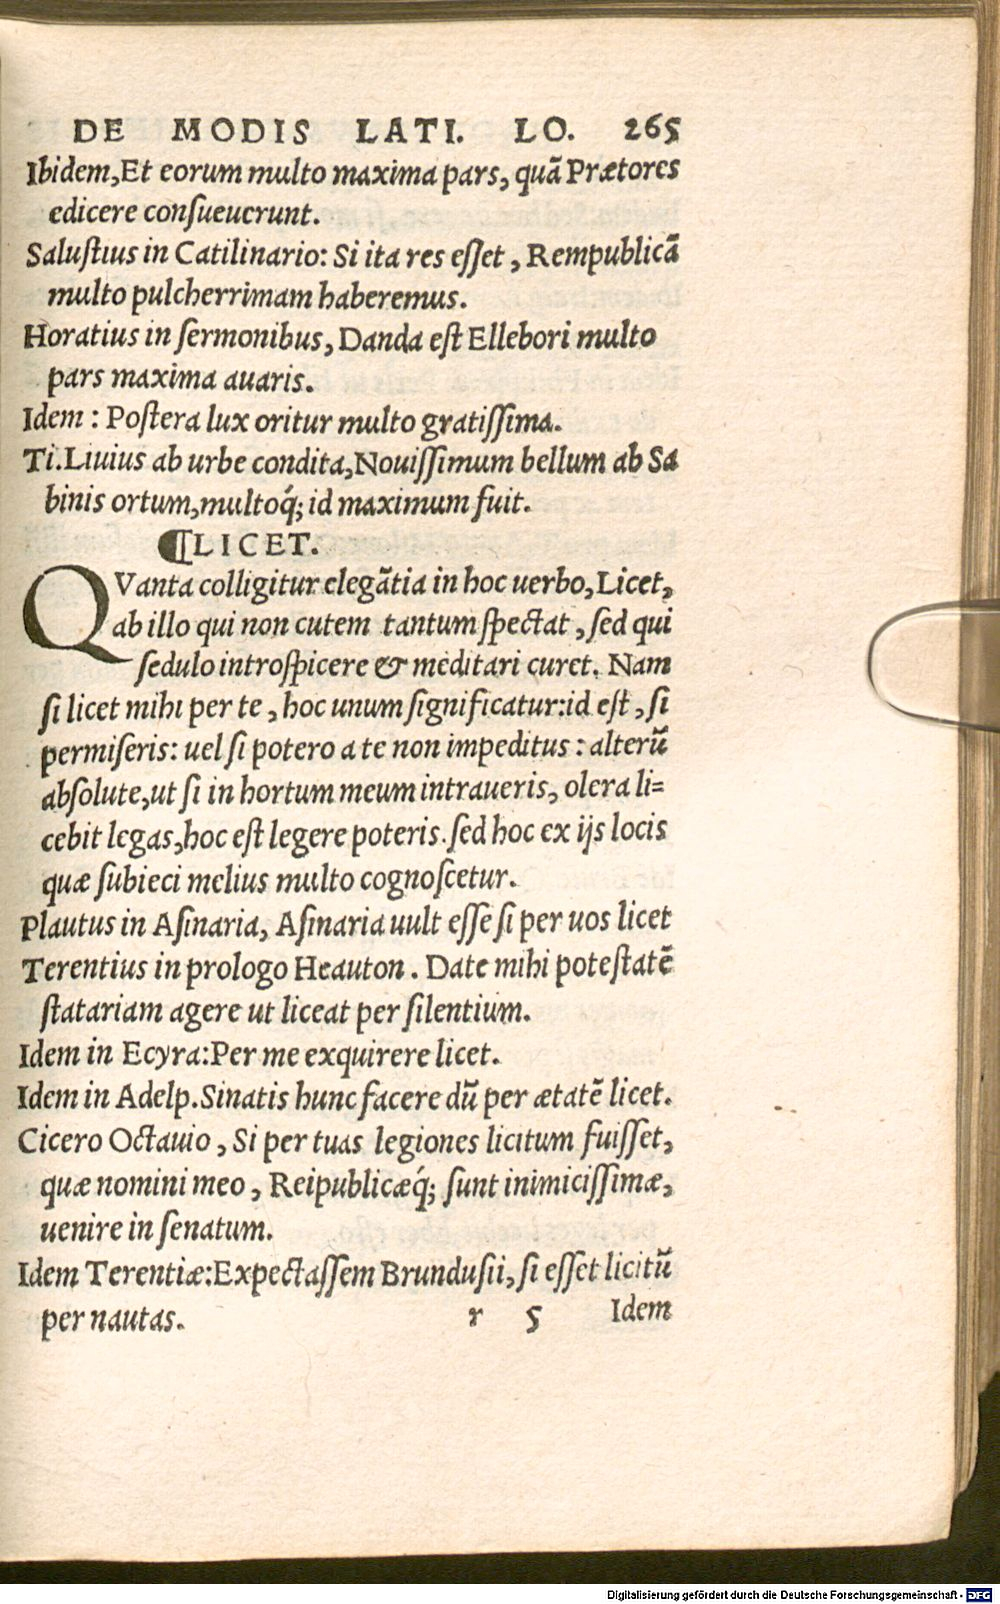 DE MODIS LATI. LO. 265
Ibidem,Et eorum multo maxima pars, quā Prætores
edicere conſueuerunt.
Saluſtius in Catilinario: Si ita res eſſet , Rempublicā
multo pulcherrimam haberemus.
Horatius in ſermonibus, Danda eſt Ellebori multo
pars maxima auaris.
Idem : Poſtera lux oritur multo gratiſſima.
Ti.Liuius ab urbe condita,Nouiſſimum bellum ab Sa
binis ortum,multoq́; id maximum fuit.
¶LICET.
QVanta colligitur elegātia in hoc uerbo, Licet,
ab illo qui non cutem tantum ſpectat , ſed qui
ſedulo introſpicere & meditari curet. Nam
ſi licet mihi per te , hoc unum ſignificatur:id eſt , ſi
permiſeris: uel ſi potero a te non impeditus : alterū
abſolute,ut ſi in hortum meum intraueris, olera li=
cebit legas,hoc eſt legere poteris. ſed hoc ex ijs locis
quæ ſubieci melius multo cognoſcetur.
Plautus in Aſinaria, Aſinaria uult eſſe ſi per uos licet
Terentius in prologo Heauton . Date mihi poteſtatē
ſtatariam agere ut liceat per ſilentium.
Idem in Ecyra:Per me exquirere licet.
Idem in Adelp.Sinatis hunc facere dū per ætatē licet.
Cicero Octauio , Si per tuas legiones licitum fuiſſet,
quæ nomini meo , Reipublicæq́; ſunt inimiciſſimæ,
uenire in ſenatum.
Idem Terentiæ:Expectaſſem Brunduſii, ſi eſſet licitū
per nautas. r 5 Idem
Digitalisierung gefördert durch die Deutsche Forschungsgemeinschaft - DFG